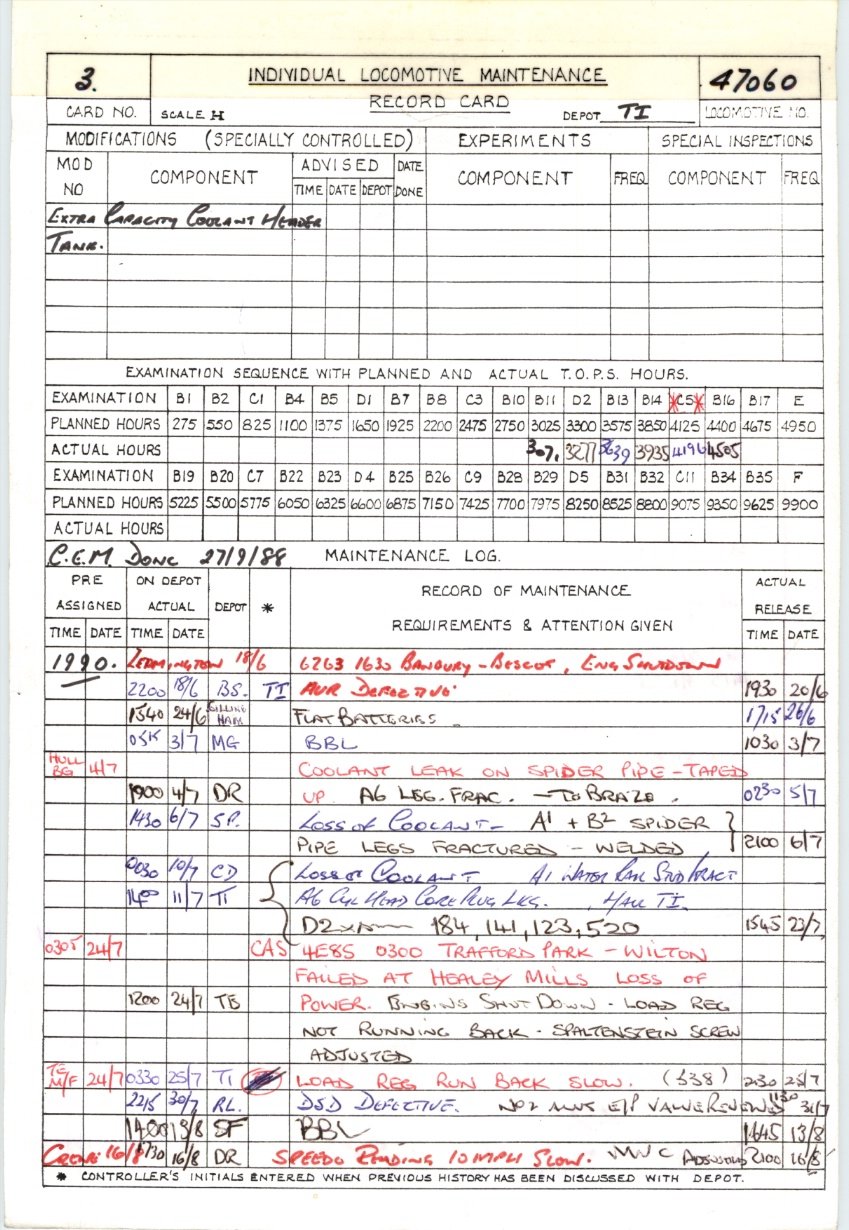 3. INDIVIDUAL LOCOMOTIVE MAINTENANCE 47060
CARD NO. SCALE H RECORD CARD DEPOT TI LOCOMOTIVE NO.
MODIFICATIONS (SPECIALLY CONTROLLED) EXPERIMENTS SPECIAL INSPECTIONS
MOD NO COMPONENT ADVISED DATE DONE COMPONENT FREQ COMPONENT FREQ
TIME DATE DEPOT
EXTRA CAPACITY COOLANT HEADER
TANK.
EXAMINATION SEQUENCE WITH PLANNED AND ACTUAL T.O.P.S. HOURS.
EXAMINATION B1 B2 C1 B4 B5 D1 B7 B8 C3 B10 B11 D2 B13 B14 *C5* B16 B17 E
PLANNED HOURS 275 550 825 1100 1375 1650 1925 2200 2475 2750 3025 3300 3575 3850 4125 4400 4675 4950
ACTUAL HOURS 307, 3277 3639 3935 4196 4505
EXAMINATION B19 B20 C7 B22 B23 D4 B25 B26 C9 B28 B29 D5 B31 B32 C11 B34 B35 F
PLANNED HOURS 5225 5500 5775 6050 6325 6600 6875 7150 7425 7700 7975 8250 8525 8800 9075 9350 9625 9900
ACTUAL HOURS
C.E.M. DONE 27/9/88 MAINTENANCE LOG.
PRE ASSIGNED ON DEPOT ACTUAL DEPOT * RECORD OF MAINTENANCE REQUIREMENTS & ATTENTION GIVEN ACTUAL RELEASE
TIME DATE TIME DATE TIME DATE
1990. LEAMINGTON 18/6 6263 1630 BANBURY - BESCOT, ENG SHUTDOWN
2200 18/6 BS. TI AVR DEFECTIVE 1930 20/6
1540 24/6 GILLINGHAM FLAT BATTERIES 1715 26/6
3/7 MG BBL 1030 3/7
HULL BG 4/7 COOLANT LEAK ON SPIDER PIPE - TAPED
1900 4/7 DR UP A6 LEG. FRAC. - TO BRAZE. 0230 5/7
1430 6/7 SP. LOSS OF COOLANT - A1 + B2 SPIDER
PIPE LEGS FRACTURED - WELDED 2100 6/7
0030 10/7 CD LOSS OF COOLANT A1 WATER RAIL STUD FRACT
1400 11/7 TI A6 CYL HEAD CORE PLUG LKG. HAUL TI.
D2 184, 141, 123, 520 1545 23/7
0305 24/7 CAS 4E85 0300 TRAFFORD PARK - WILTON
FAILED AT HEALEY MILLS LOSS OF
1200 24/7 TE POWER. ENGINE SHUT DOWN - LOAD REG
NOT RUNNING BACK - SPALTENSTEIN SCREW
ADJUSTED
TE M/F 24/7 0330 25/7 TI LOAD REG RUN BACK SLOW. (538) 2130 25/7
2215 30/7 RL. DSD DEFECTIVE. E/P VALVE RENEWED 1130 31/7
1400 13/8 SF BBL 1645 13/8
CREWE 16/8 1730 16/8 DR SPEEDO READING 10 MPH SLOW. ADJUSTED 2100 16/8
* CONTROLLER'S INITIALS ENTERED WHEN PREVIOUS HISTORY HAS BEEN DISCUSSED WITH DEPOT.